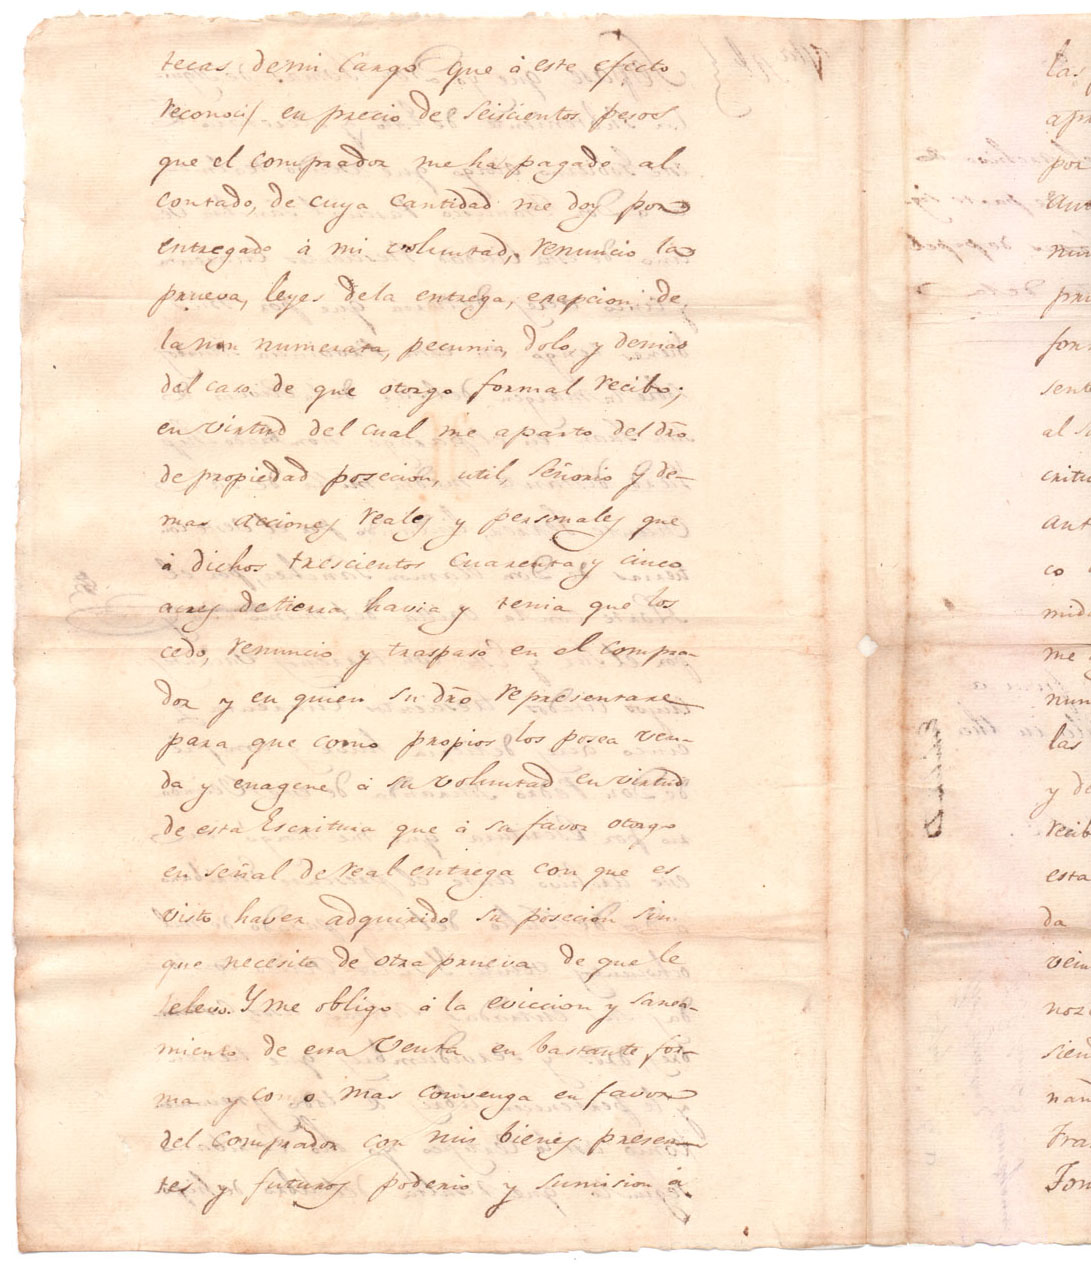 tecas de mi cargo que à este efecto
reconoci en precio de seiscientos pesos
que el comprador me ha pagado al
contado, de cuya cantidad me doy por
entregado à mi voluntad, renuncio la
prueva, leyes de la entrega, ecepcion de
la non numerata, pecunia, dolo, y demas
del caso de que otorgo formal recibo;
en virtud del cual me aparto del dr̃o
de propiedad posecion, util, señorio y de-
mas acciones reales y personales que
à dichos trescientos cuarenta y cinco
acres de tierra havia y tenia que los
cedo, renuncio y traspaso en el compra-
dor y en quien su dr̃o representare
para que como propios los posea ven-
da y enagene à su voluntad en virtud
de esta Escritura que à su favor otorgo
en señal de real entrega con que es
visto haver adquirido su posecion sin
que necesite de otra prueva de que le
relevo. Y me obligo à la eviccion y sanea-
miento de esta venta en bastante for-
ma y como mas convenga en favor
del comprador con mis bienes presen-
tes y futuros poderio y sumision à
las
apr
por
nun
pri
for
sent
al
critu
ant
co
mid
me
nun
las
y de
recib
esta
da
vein
nos
sien
nan
Fra
Fon